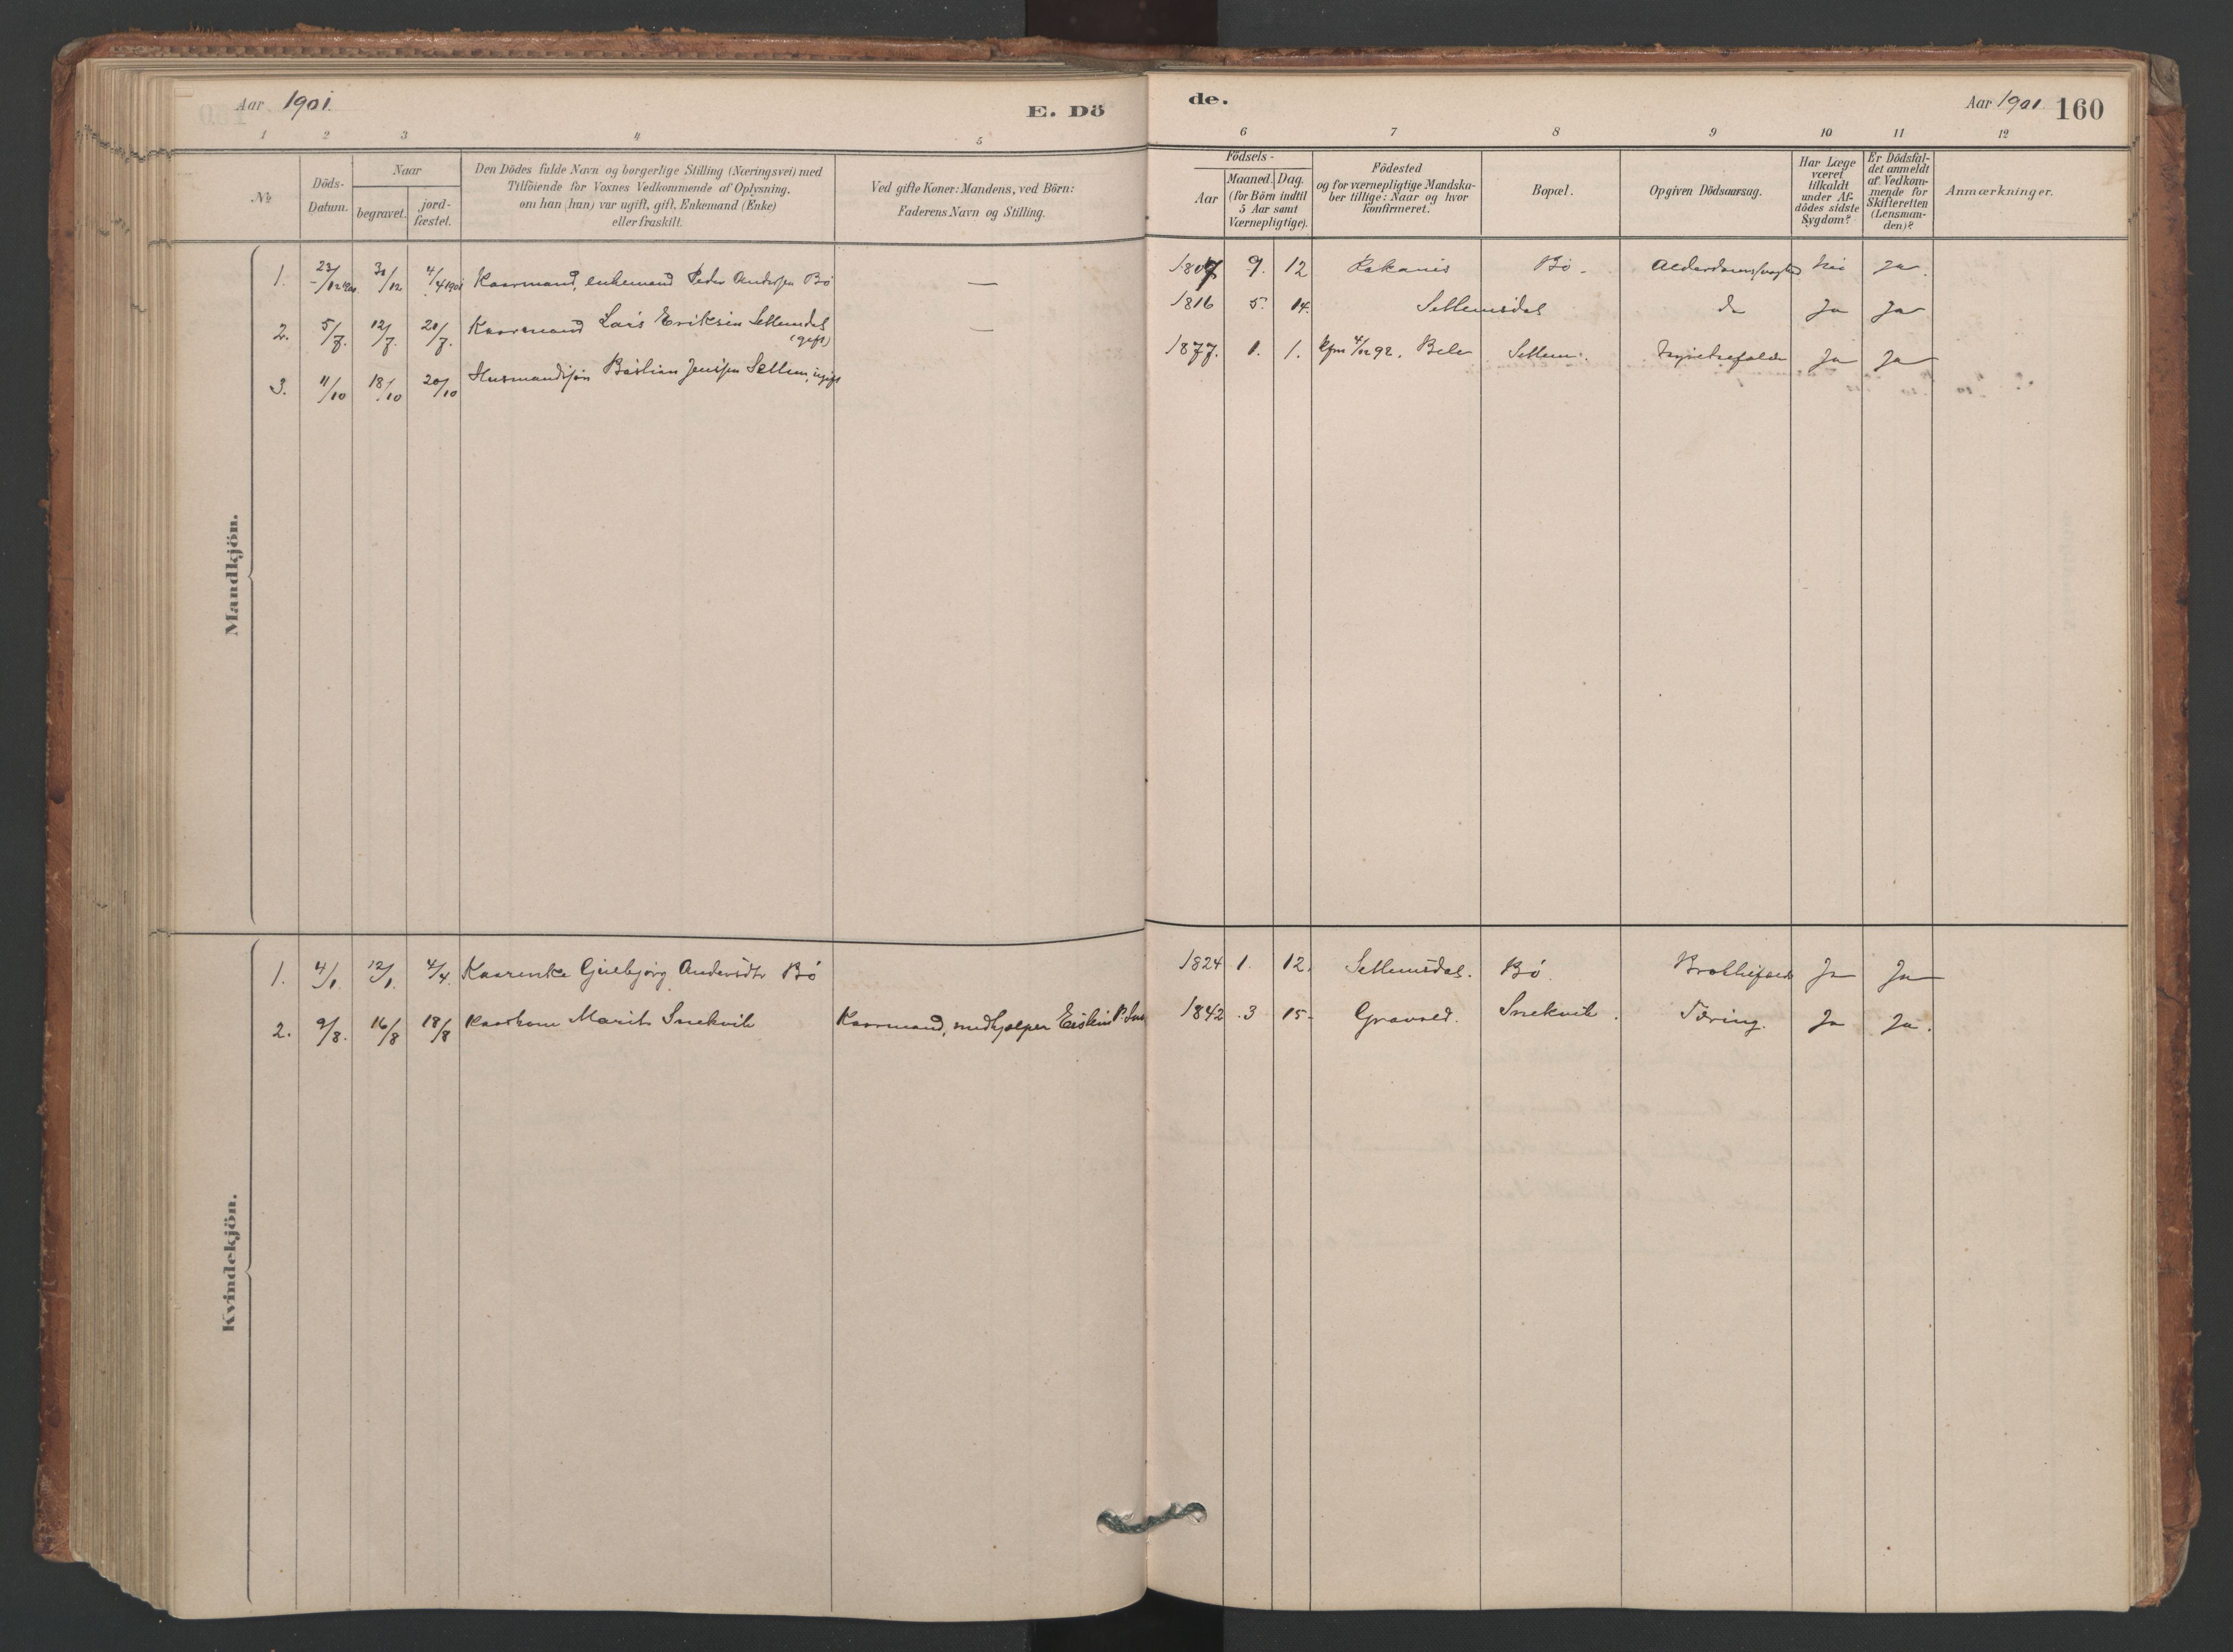 Aar 1901.
E. Dö
de.
Aar 1901. 160
1 2 3 4 5 6 7 8 9 10 11 12
No
Döds-
Datum.
Naar
begravet.
jord-
fæstet.
Den Dödes fulde Navn og borgerlige Stilling (Næringsvei) med
Tilföiende for Voxnes Vedkommende af Oplysning,
om han (hun) var ugift, gift, Enkemand (Enke)
eller fraskilt.
Ved gifte Koner: Mandens, ved Börn:
Faderens Navn og Stilling.
Födsels-
Aar
Maaned. Dag.
(for Börn indtil
5 Aar samt
Værnepligtige).
Födested
og for værnepligtige Mandska-
ber tillige: Naar og hvor
konfirmeret.
Bopæl.
Opgiven Dödsaarsag.
Har Læge
været
tilkaldt
under Af-
dödes sidste
Sygdom?
Er Dödsfal-
det anmeldt
af Vedkom-
mende for
Skifteretten
(Lensman-
den)?
Anmærkninger.
Mandkjön.
1. 23/12 1900 30/12 4/4 1901 Kaarmand, enkemand Peder Andersen Bö — 1807 9. 12 Bö. Alderdomssvaghed Nei Ja.
2. 5/7. 12/7. 20/7. Kaarmand Lars Eriksen Settemsdal (gift) — 1816 5. 14. Settemsdal do Ja Ja
3. 11/10 18/10 20/10 Husmandssøn Bastian Jenssen Settem, ugift 1877. 1. 1. kfm 4/12 92. Settem. Ja Ja
Kvindekjön.
1. 4/1. 12/1. 4/4. Kaarenke Gjelbjørg Andersdtr Bö 1824 1. 12. Settemsdal. Bö. Ja Ja
2. 9/8. 16/8 18/8 Kaarkone Marit Snekvik Kaarmand, medhjælper 1842 3 15. Gravvold. Snekvik. Tæring. Ja Ja.